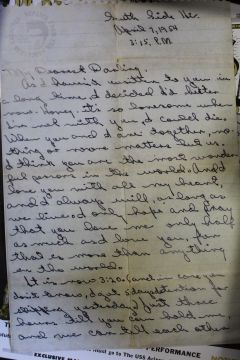 South Side He.
April 7, 1954
3:15, P.M.
My Dearest Darling,
As I haven't written to you in
a long time, I decided I'd better
now. Honey, it's so lonesome when
I'm not with you, I could die.
When you and I are together, no-
thing or noone matters but us.
I think you are the most wonder
ful person in the world. And I
love you with all my heart,
and I always will, as long as
we live. I only hope and pray
that you love me only half
as much as I love you, for
that is more than anything
in the world.
It is now 3:20, (and in case you
don't know,
yesterday) just three
hours till you can hold me,
and we can tell each other
PERFORMANCE
EXCLUSIVE
Must go to The USS Ari